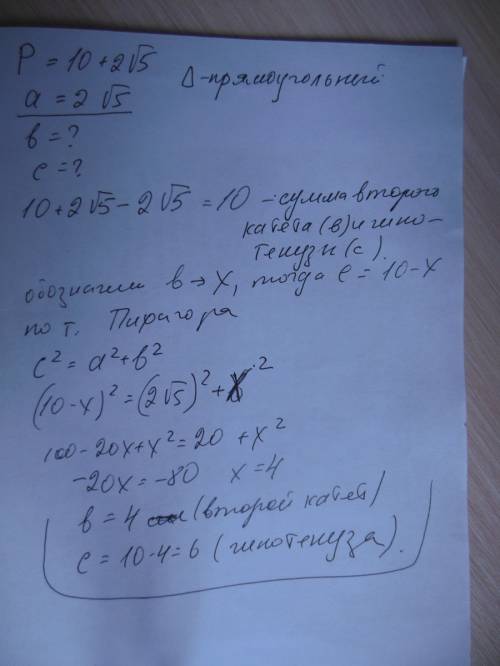 P = 10 + 2√5
Δ-прямоугольный
a = 2√5
b = ?
c = ?
10 + 2√5 - 2√5 = 10 - сумма второго
катета (b) и гипо-
тенузы (c).
обозначим b → x, тогда c = 10 - x
по т. Пифагора
c² = a² + b²
(10 - x)² = (2√5)² + x²
100 - 20x + x² = 20 + x²
-20x = -80 x = 4
b = 4 (второй катет)
c = 10 - 4 = 6 (гипотенуза).